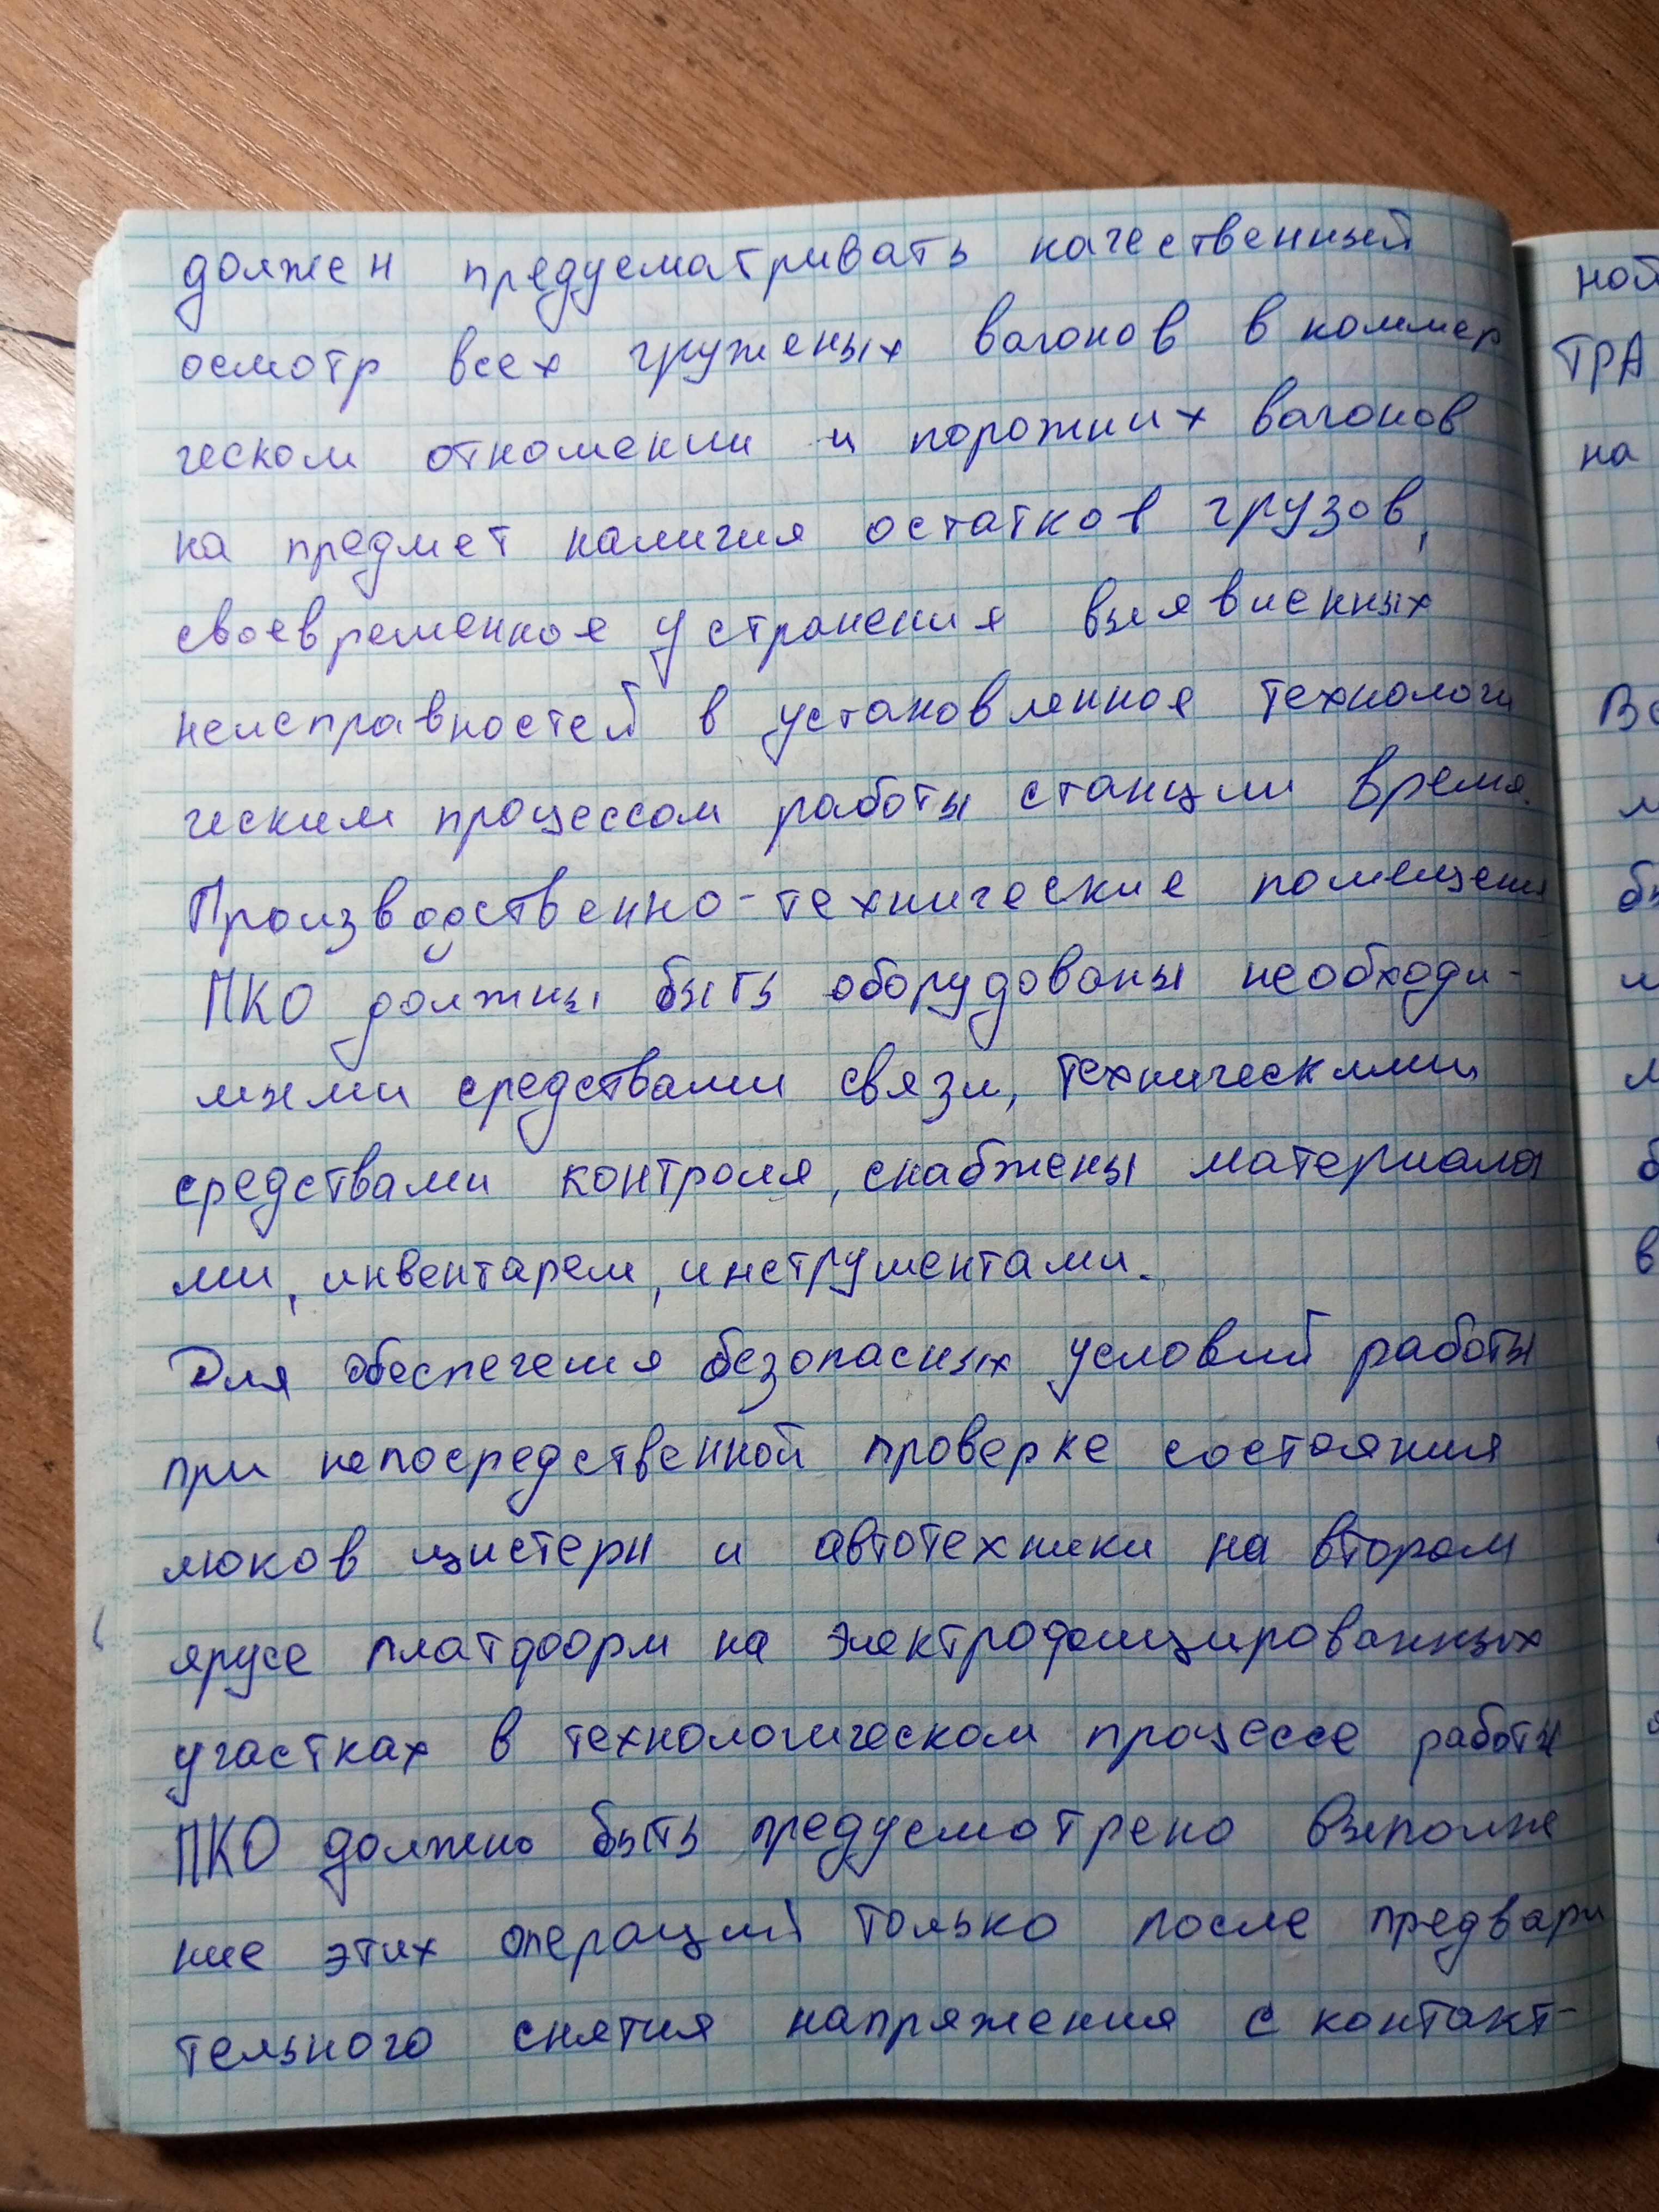 должен предусматривать качественный
осмотр всех груженых вагонов в коммер
ческом отношении и порожних вагонов
на предмет наличия остатков грузов,
своевременное устранения выявленных
неисправностей в установленное технологи
ческим процессом работы станции время.
Производственно-технические помещения
ПКО должны быть оборудованы необходи-
мыми средствами связи, техническими
средствами контроля, снабжены материала
ми, инвентарем, инструментами.
Для обеспечения безопасных условий работы
при непосредственной проверке состояния
люков цистерн и автотехники на втором
ярусе платформ на электрофицированных
участках в технологическом процессе работы
ПКО должно быть предусмотрено выполне
ние этих операций только после предвари
тельного снятия напряжения с контакт-
ной
ТРА
на